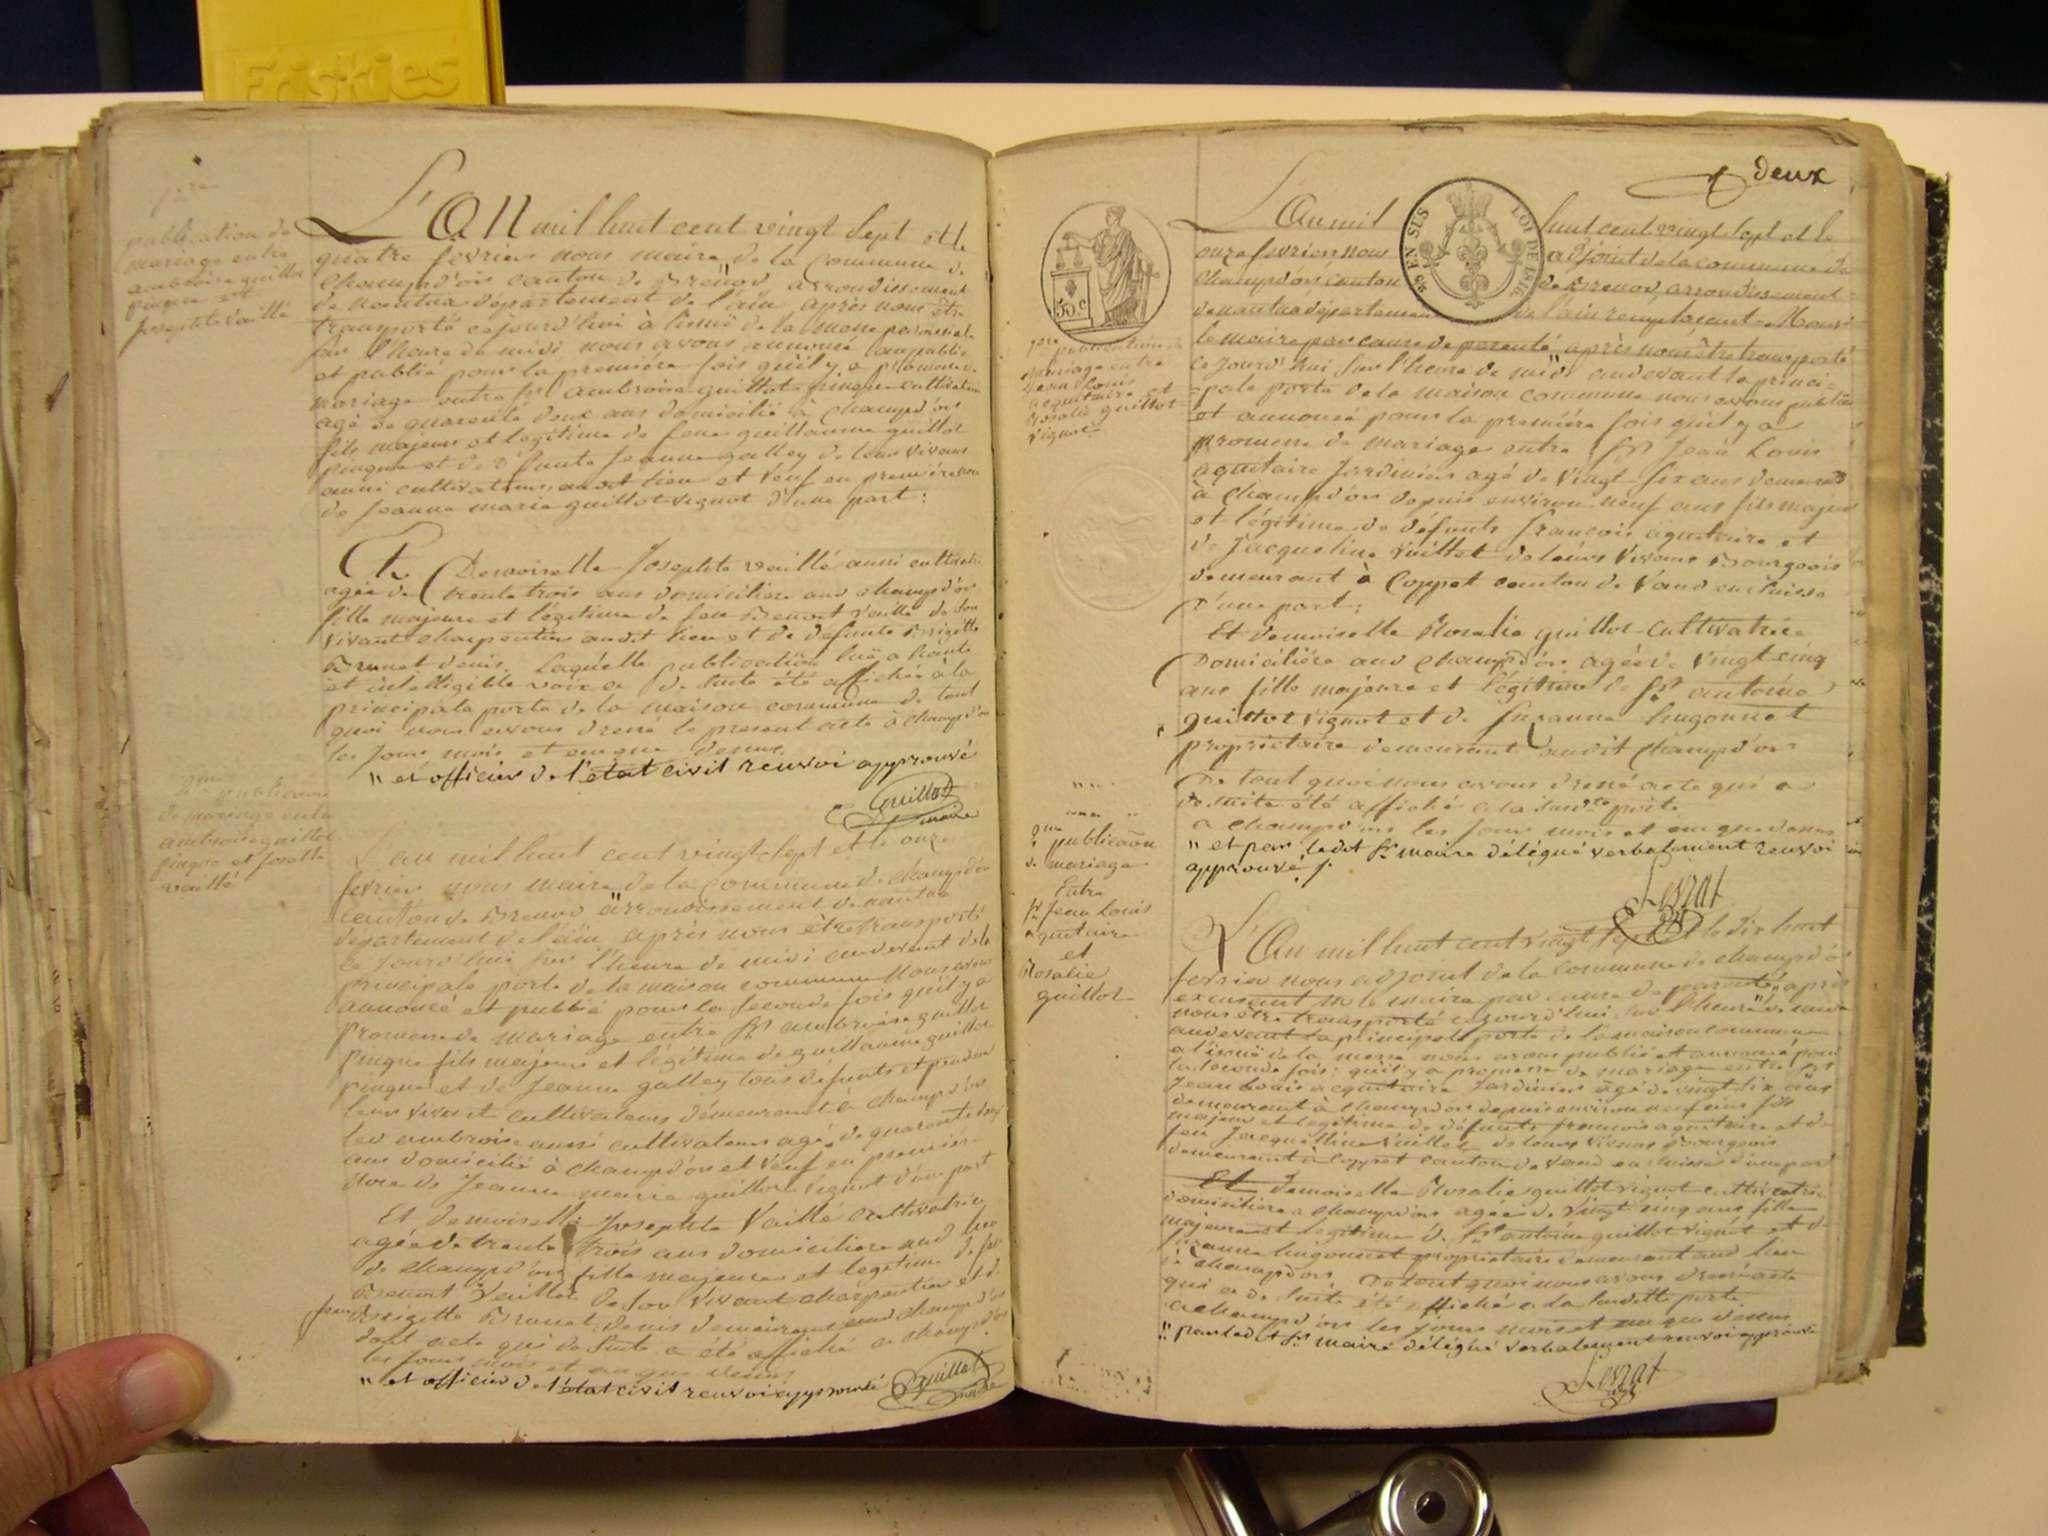 Friskies
1re
publication de
mariage entre
ambroise guillot
pingue et
Josephte Vaillé
L'an mil huit cent vingt sept et le
quatre fevrier nous maire de la commune de
Champdor canton de Brénod arrondissement
de nantua département de l'ain après nous être
transporté cejourd'hui à l'issuë de la messe paroissiale
sur l'heure de midi nous avons annoncé
et publié pour la première fois qu'il y a promesse de
mariage entre sr ambroise guillot pingue cultivateur
agé de quarente deux ans domicilié à champd'or
fils majeur et légitime de feu guillaume guillot
pingue et de défunte Jeanne galley de leur vivans
aussi cultivateurs audit lieu et veuf en première noce
de Jeanne marie guillot-vignot d'une part:
Et Demoiselle Josephte vaillé aussi cultivatrice
agée de trente trois ans domiciliere aud champd'or
fille majeure et légitime de feu Benoit Vaillé de son
vivant charpentier audit lieu et de défunte Brigitte
Brunet denis. Laquelle publication luë a haute
et intelligible voix a de suite été affichée à la
principale porte de la maison commune de tout
quoi nous avons dressé le présent acte à champd'or
les jour mois et an que dessus
" et officier de l'état civil renvoi approuvé
Guillot
maire
2me publication
de mariage entre
ambroise guillot
pingue et Josette
vaillé
L'an mil huit cent vingt sept et le onze
fevrier nous maire de la commune de champd'or
canton de Brenod " arrondissement de nantua
département de l'ain après nous être transporté
ce jourd'hui sur l'heure de midi audevant de la
principale porte de la maison commune nous avons
annoncé et publié pour la seconde fois qu'il y a
promesse de mariage entre sr ambroise guillot
pingue fils majeur et légitime de guillaume guillot
pingue et de Jeanne galley tous défunts et pendant
leur vivant cultivateurs demeurant à champd'or
led ambroise aussi cultivateur agé de quarente deux
ans domicilié à champd'or et veuf en première
noce de Jeanne marie guillot vignot d'une part
Et demoiselle Josephte Vaillé cultivatrice
agée de trente trois ans domiciliere aud lieu
de champd'or fille majeure et légitime de feu
Benoit Vaillé de son vivant charpentier et de
feue Brigitte Brunet denis demeurant aud champd'or
dont acte qui de suite a été affiché a champd'or
les jours mois et an que dessus
" et officier de l'état civil renvoi approuvé
Guillot
maire
deux
50 c
EN SUS
LOI DE 1816
1ere
publication de
mariage entre
Jean Louis
aquitaire et
Rosalie guillot
vignot
L'an mil huit cent vingt sept et le
onze fevrier nous adjoint de la commune de
champd'or canton de Brenod, arrondissement
de nantua département de l'ain remplacant Monsi
le maire pour cause de parenté après nous être transporté
ce jourd'hui sur l'heure de midi audevant la princi-
-pale porte de la maison commune nous avons publié
et annoncé pour la première fois qu'il y a
promesse de mariage entre sr Jean Louis
aquitaire Jardinier agé de vingt six ans demeurant
à champd'or depuis environ neuf ans fils majeur
et légitime de défunts françois aquitaire et
de Jacqueline Vuillet de leurs vivans Bourgeois
demeurant à Coppet canton de Vaud en suisse
d'une part:
Et demoiselle Rosalie guillot cultivatrice
Domiciliére aud champd'or agée de vingt cinq
ans fille majeure et légitime de sr antoine
guillot vignot et de suzanne hugonnet
propriétaire demeurant audit champd'or
De tout quoi nous avons dressé acte qui a
de suite été affiché a la susdte porte
a champd'or les jours mois et an que dessus
" et par ledit sr maire délégué verbalement renvoi
approuvé
2me
publicaon
de mariage
Entre
sr Jean Louis
aquitaire
et
Rosalie
guillot
L'an mil huit cent vingt sept et le dix huit
fevrier nous adjoint de la commune de champd'or
excusant mr le maire pour cause de parenté " après
nous être transporté cejourd'hui sur l'heure de midi
audevant la principale porte de la maison commune
a l'issuë de la messe nous avons publié et annoncé pour
la seconde fois: qu'il y a promesse de mariage entre sr
Jean Louis acquitaire Jardinier agé de vingt six ans
demeurant à champd'or depuis environ neuf ans fils
majeur et légitime de défunts françois aquitaire et de
feu Jacquelline Vuillet de leurs vivans Bourgeois
demeurant à Coppet canton de Vaud en suisse d'une part
Et demoiselle Rosalie guillot vignot cultivatrice
domiciliere a champd'or agée de vingt cinq ans fille
majeure et légitime de sr antoine guillot vignot et de
suzanne hugonnet propriétaire demeurant aud lieu
de champd'or De tout quoi nous avons dressé acte
qui a de suite été affiché a la susditte porte
a champd'or les jours mois et an que dessus
" par ledit sr maire délégué verbalement renvoi approuvé